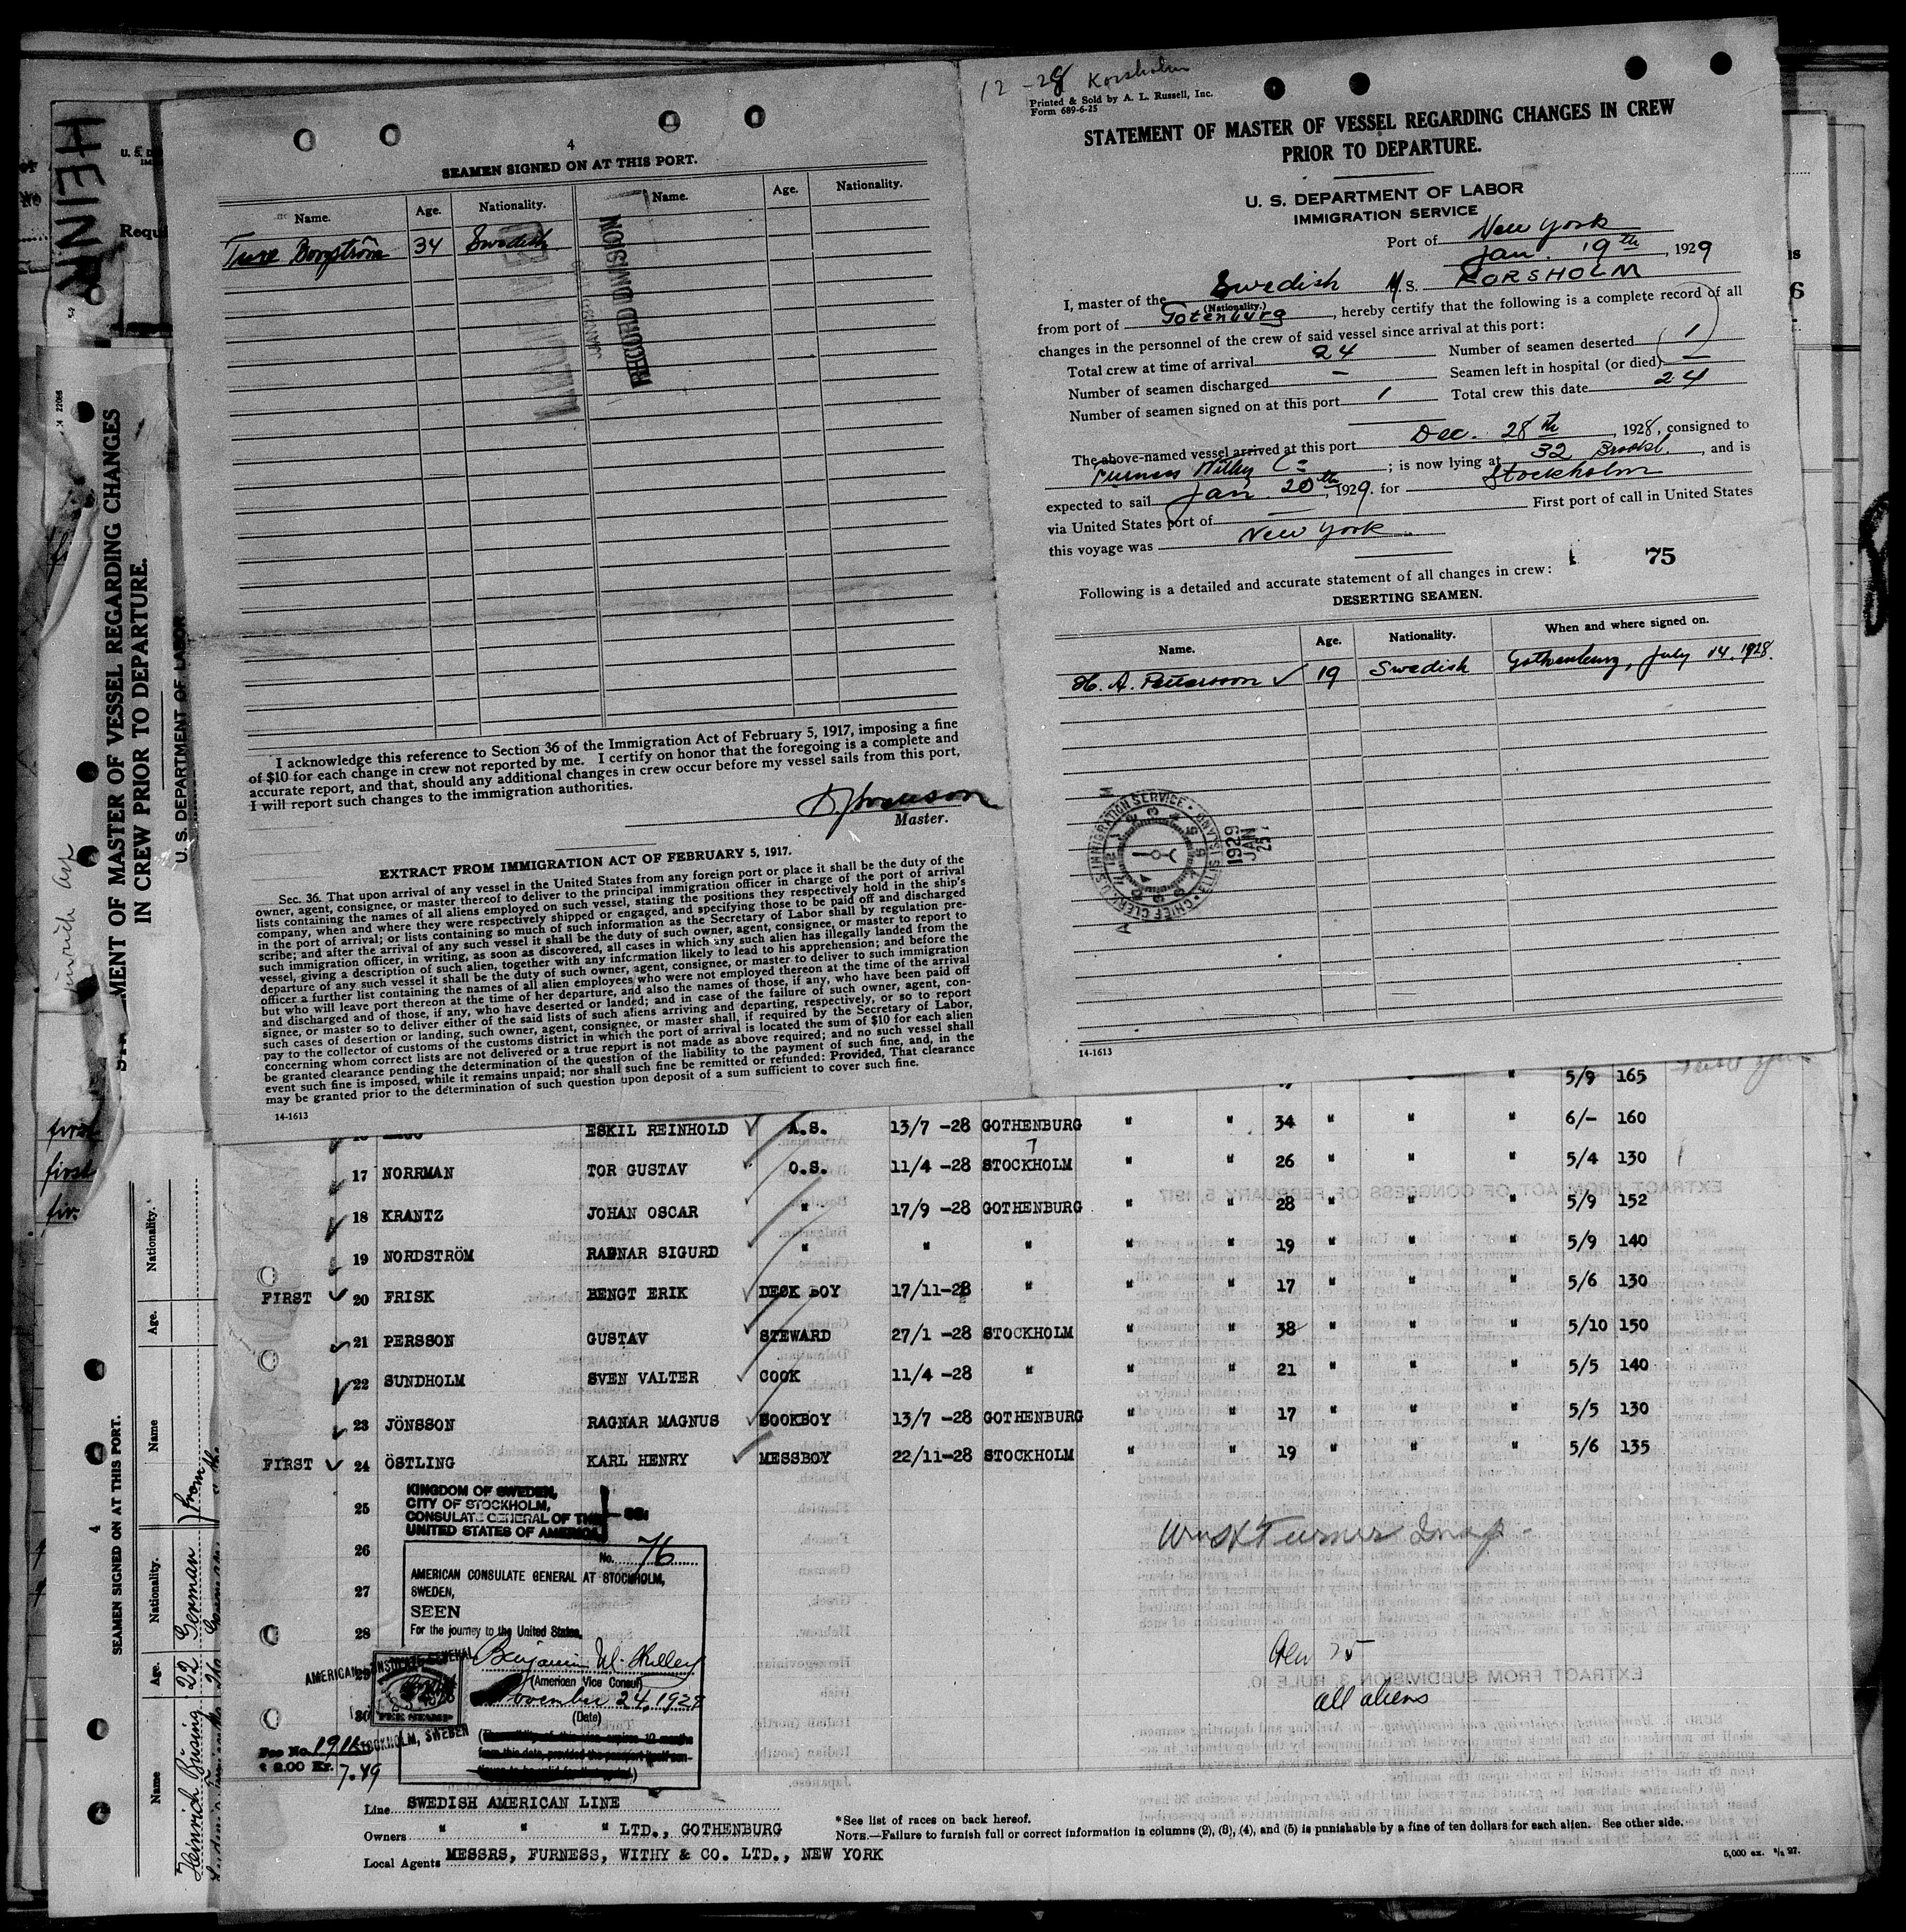 12-28 Korsholm
Printed & Sold by A. L. Russell, Inc.
Form 689-6-25
STATEMENT OF MASTER OF VESSEL REGARDING CHANGES IN CREW
PRIOR TO DEPARTURE.
U. S. DEPARTMENT OF LABOR
IMMIGRATION SERVICE
Port of New York
Jan. 19th, 1929
I, master of the Swedish M.S. KORSHOLM
(Nationality.)
from port of Gotenburg, hereby certify that the following is a complete record of all
changes in the personnel of the crew of said vessel since arrival at this port:
Total crew at time of arrival 24 Number of seamen deserted 1
Number of seamen discharged — Seamen left in hospital (or died) —
Number of seamen signed on at this port 1 Total crew this date 24
The above-named vessel arrived at this port Dec. 28th, 1928, consigned to
Furness Withy Co; is now lying at 32 Brookl., and is
expected to sail Jan. 20th, 1929. for Stockholm
via United States port of — First port of call in United States
this voyage was New York
75
Following is a detailed and accurate statement of all changes in crew:
DESERTING SEAMEN.
Name. Age. Nationality. When and where signed on.
H. A. Pettersson ✓ 19 Swedish Gothenburg, July 14. 1928.
CHIEF CLERK, U.S. IMMIGRATION SERVICE • ELLIS ISLAND
1929
JAN
25
14-1613
4
SEAMEN SIGNED ON AT THIS PORT.
Name. Age. Nationality. Name. Age. Nationality.
Ture Borgström 34 Swedish
RECORD DIVISION
I acknowledge this reference to Section 36 of the Immigration Act of February 5, 1917, imposing a fine
of $10 for each change in crew not reported by me. I certify on honor that the foregoing is a complete and
accurate report, and that, should any additional changes in crew occur before my vessel sails from this port,
I will report such changes to the immigration authorities.
Master.
EXTRACT FROM IMMIGRATION ACT OF FEBRUARY 5, 1917.
Sec. 36. That upon arrival of any vessel in the United States from any foreign port or place it shall be the duty of the
owner, agent, consignee, or master thereof to deliver to the principal immigration officer in charge of the port of arrival
lists containing the names of all aliens employed on such vessel, stating the positions they respectively hold in the ship's
company, when and where they were respectively shipped or engaged, and specifying those to be paid off and discharged
in the port of arrival; or lists containing so much of such information as the Secretary of Labor shall by regulation pre-
scribe; and after the arrival of any such vessel it shall be the duty of such owner, agent, consignee, or master to report to
such immigration officer, in writing, as soon as discovered, all cases in which any such alien has illegally landed from the
vessel, giving a description of such alien, together with any information likely to lead to his apprehension; and before the
departure of any such vessel it shall be the duty of such owner, agent, consignee, or master to deliver to such immigration
officer a further list containing the names of all alien employees who were not employed thereon at the time of the arrival
but who will leave port thereon at the time of her departure, and also the names of those, if any, who have been paid off
and discharged and of those, if any, who have deserted or landed; and in case of the failure of such owner, agent, con-
signee, or master so to deliver either of the said lists of such aliens arriving and departing, respectively, or so to report
such cases of desertion or landing, such owner, agent, consignee, or master shall, if required by the Secretary of Labor,
pay to the collector of customs of the customs district in which the port of arrival is located the sum of $10 for each alien
concerning whom correct lists are not delivered or a true report is not made as above required; and no such vessel shall
be granted clearance pending the determination of the question of the liability to the payment of such fine, and, in the
event such fine is imposed, while it remains unpaid; nor shall such fine be remitted or refunded: Provided, That clearance
may be granted prior to the determination of such question upon deposit of a sum sufficient to cover such fine.
14-1613
5/9 165
ESKIL REINHOLD A.S. 13/7 -28 GOTHENBURG " " 34 " " " 6/- 160
17 NORRMAN TOR GUSTAV O.S. 11/4 -28 STOCKHOLM " " 26 " " " 5/4 130
18 KRANTZ JOHAN OSCAR " 17/9 -28 GOTHENBURG " " 28 " " " 5/9 152
19 NORDSTRÖM RAGNAR SIGURD " " " " " 19 " " " 5/9 140
FIRST 20 FRISK BENGT ERIK DECK BOY 17/11-28 " " " 17 " " " 5/6 130
21 PERSSON GUSTAV STEWARD 27/1 -28 STOCKHOLM " " 38 " " " 5/10 150
22 SUNDHOLM SVEN VALTER COOK 11/4 -28 " " " 21 " " " 5/5 140
23 JÖNSSON RAGNAR MAGNUS COOKBOY 13/7 -28 GOTHENBURG " " 17 " " " 5/5 130
FIRST 24 ÖSTLING KARL HENRY MESSBOY 22/11-28 STOCKHOLM " " 19 " " " 5/6 135
25
26
27
28
29
30
KINGDOM OF SWEDEN,
CITY OF STOCKHOLM,
CONSULATE GENERAL OF THE
UNITED STATES OF AMERICA
SS:
No. 76
AMERICAN CONSULATE GENERAL AT STOCKHOLM,
SWEDEN,
SEEN
For the journey to the United States.
(American Vice Consul)
November 24, 1928
(Date)
AMERICAN CONSULATE GENERAL
FEE STAMP
STOCKHOLM, SWEDEN
Fee No. 1911
$ 2.00 Kr. 7.49
Wm H Turner Insp
all aliens
Line SWEDISH AMERICAN LINE
Owners " " " LTD., GOTHENBURG
Local Agents MESSRS, FURNESS, WITHY & CO. LTD., NEW YORK
*See list of races on back hereof.
NOTE.—Failure to furnish full or correct information in columns (2), (3), (4), and (5) is punishable by a fine of ten dollars for each alien. See other side.
5,000 ex.
HEINR
Requ
MENT OF MASTER OF VESSEL REGARDING CHANGES
IN CREW PRIOR TO DEPARTURE.
U. S. DEPARTMENT OF LABOR
first
first
4
SEAMEN SIGNED ON AT THIS PORT.
Name Age. Nationality. Name Age. Nationality.
Heinrich Büsing 22 German from